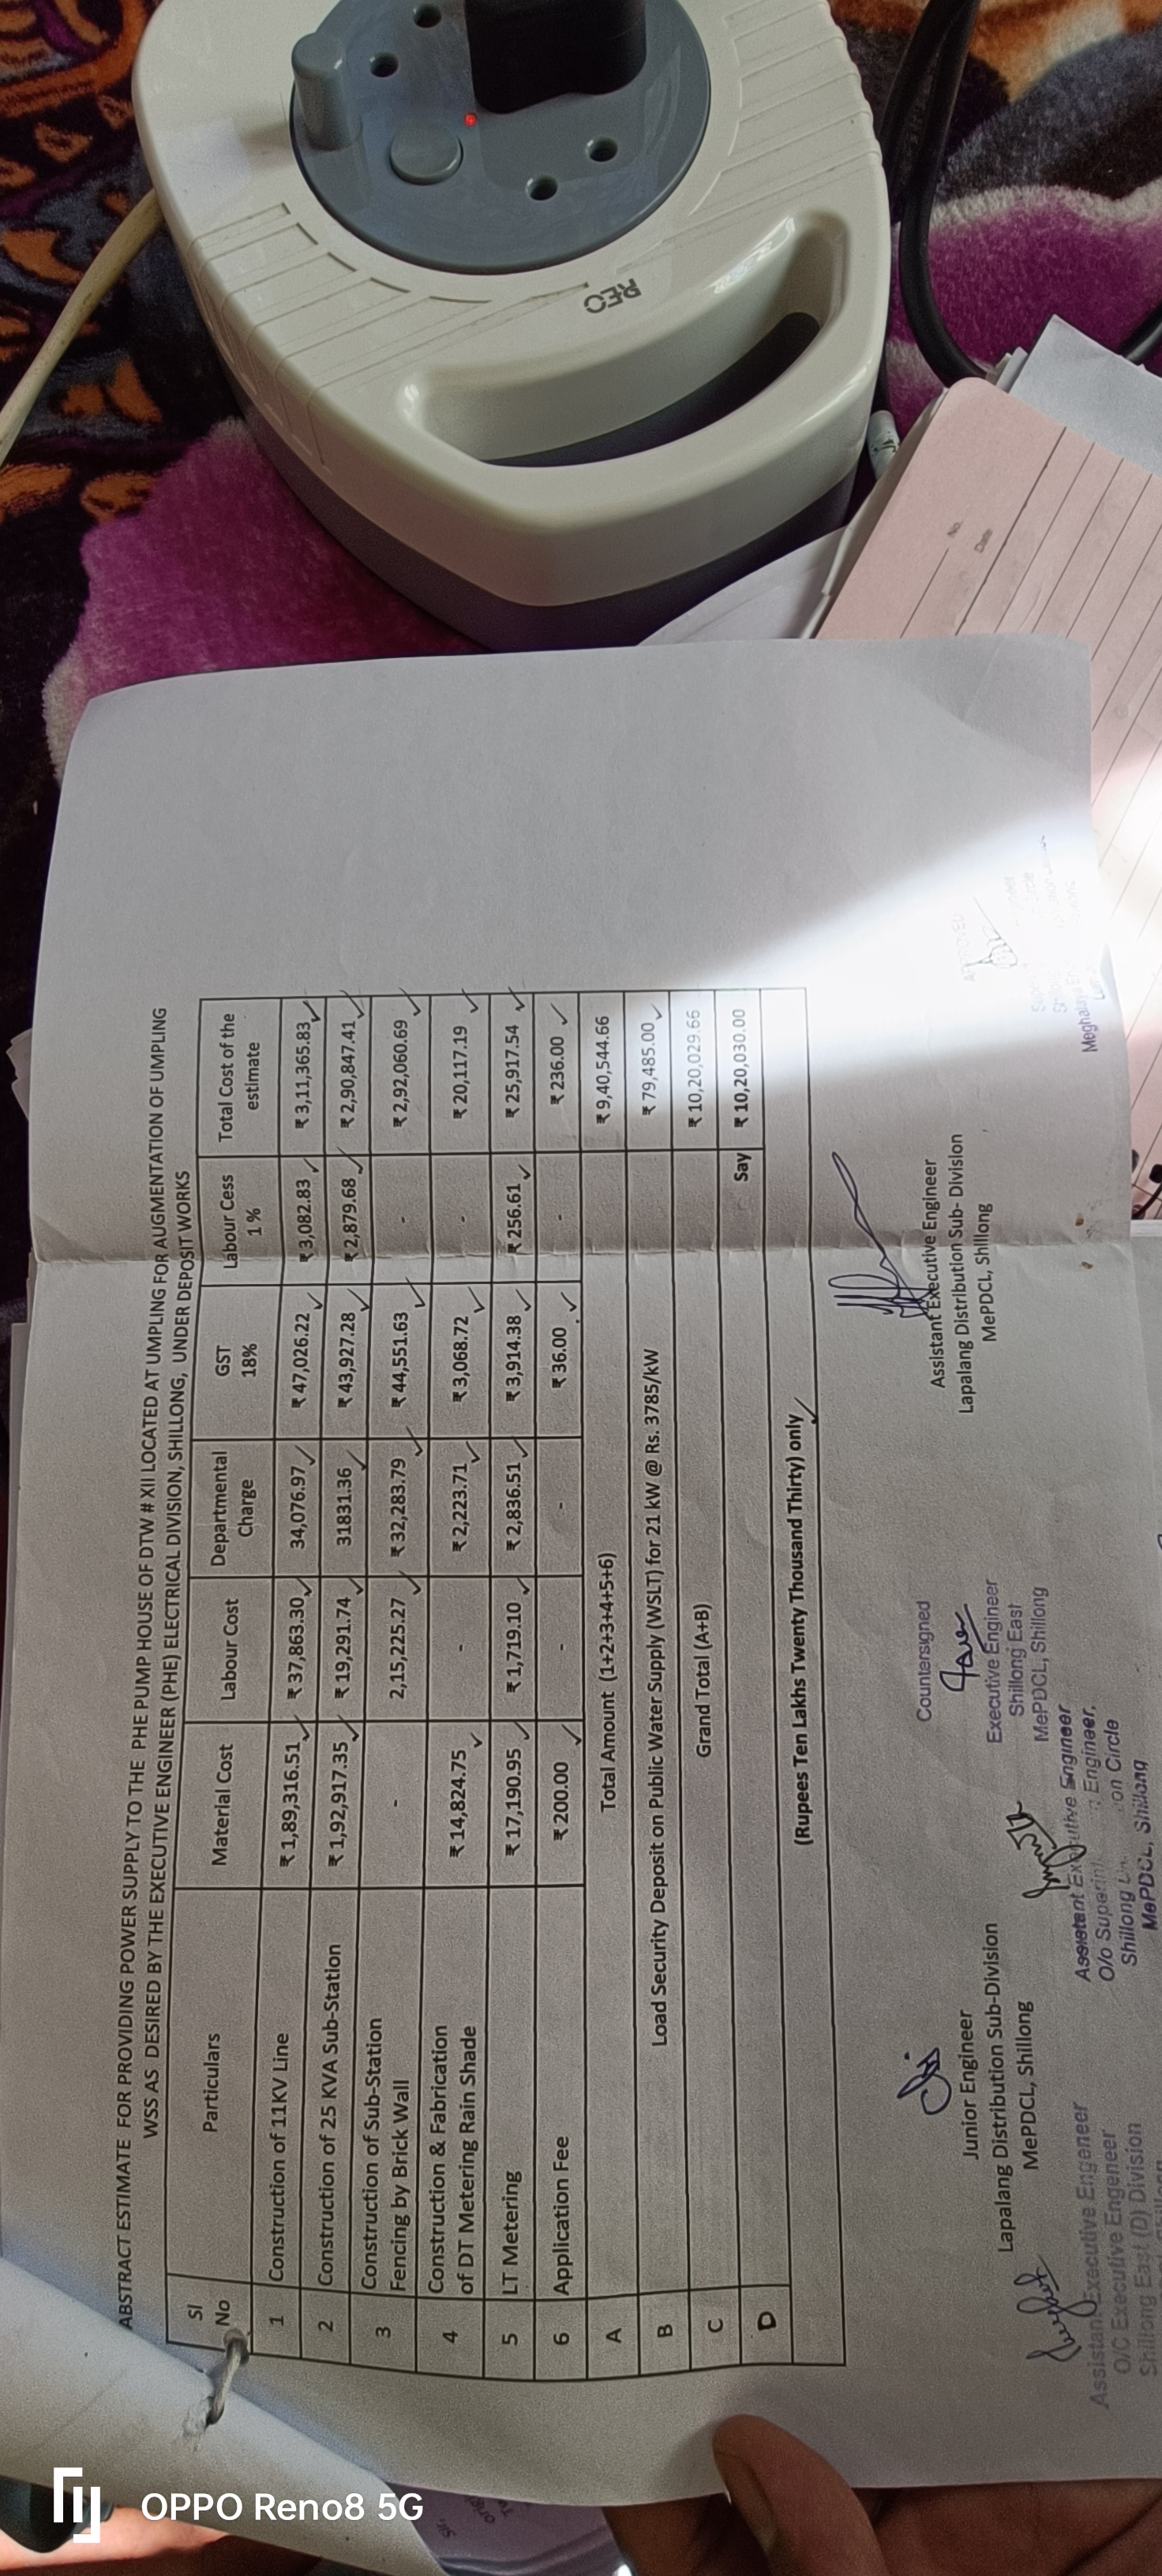 ABSTRACT ESTIMATE FOR PROVIDING POWER SUPPLY TO THE PHE PUMP HOUSE OF DTW # XII LOCATED AT UMPLING FOR AUGMENTATION OF UMPLING
WSS AS DESIRED BY THE EXECUTIVE ENGINEER (PHE) ELECTRICAL DIVISION, SHILLONG, UNDER DEPOSIT WORKS
Sl No Particulars Material Cost Labour Cost Departmental Charge GST 18% Labour Cess 1 % Total Cost of the estimate
1 Construction of 11KV Line ₹ 1,89,316.51 ₹ 37,863.30 34,076.97 ₹ 47,026.22 ₹ 3,082.83 ₹ 3,11,365.83
2 Construction of 25 KVA Sub-Station ₹ 1,92,917.35 ₹ 19,291.74 31831.36 ₹ 43,927.28 ₹ 2,879.68 ₹ 2,90,847.41
3 Construction of Sub-Station Fencing by Brick Wall - 2,15,225.27 ₹ 32,283.79 ₹ 44,551.63 - ₹ 2,92,060.69
4 Construction & Fabrication of DT Metering Rain Shade ₹ 14,824.75 - ₹ 2,223.71 ₹ 3,068.72 - ₹ 20,117.19
5 LT Metering ₹ 17,190.95 ₹ 1,719.10 ₹ 2,836.51 ₹ 3,914.38 ₹ 256.61 ₹ 25,917.54
6 Application Fee ₹ 200.00 - - ₹ 36.00 - ₹ 236.00
A Total Amount (1+2+3+4+5+6) ₹ 9,40,544.66
B Load Security Deposit on Public Water Supply (WSLT) for 21 kW @ Rs. 3785/kW ₹ 79,485.00
C Grand Total (A+B) ₹ 10,20,029.66
D Say ₹ 10,20,030.00
(Rupees Ten Lakhs Twenty Thousand Thirty) only
Junior Engineer
Lapalang Distribution Sub-Division
MePDCL, Shillong
Assistant Executive Engineer
Lapalang Distribution Sub- Division
MePDCL, Shillong
Countersigned
Executive Engineer
Shillong East
MePDCL, Shillong
Assistant Executive Engineer
O/o Engineer,
Shillong Circle
MePDCL, Shillong
Assistant Executive Engeneer
O/C Executive Engeneer
Shillong East (D) Division
APPROVED
REO
No.
Date
OPPO Reno8 5G